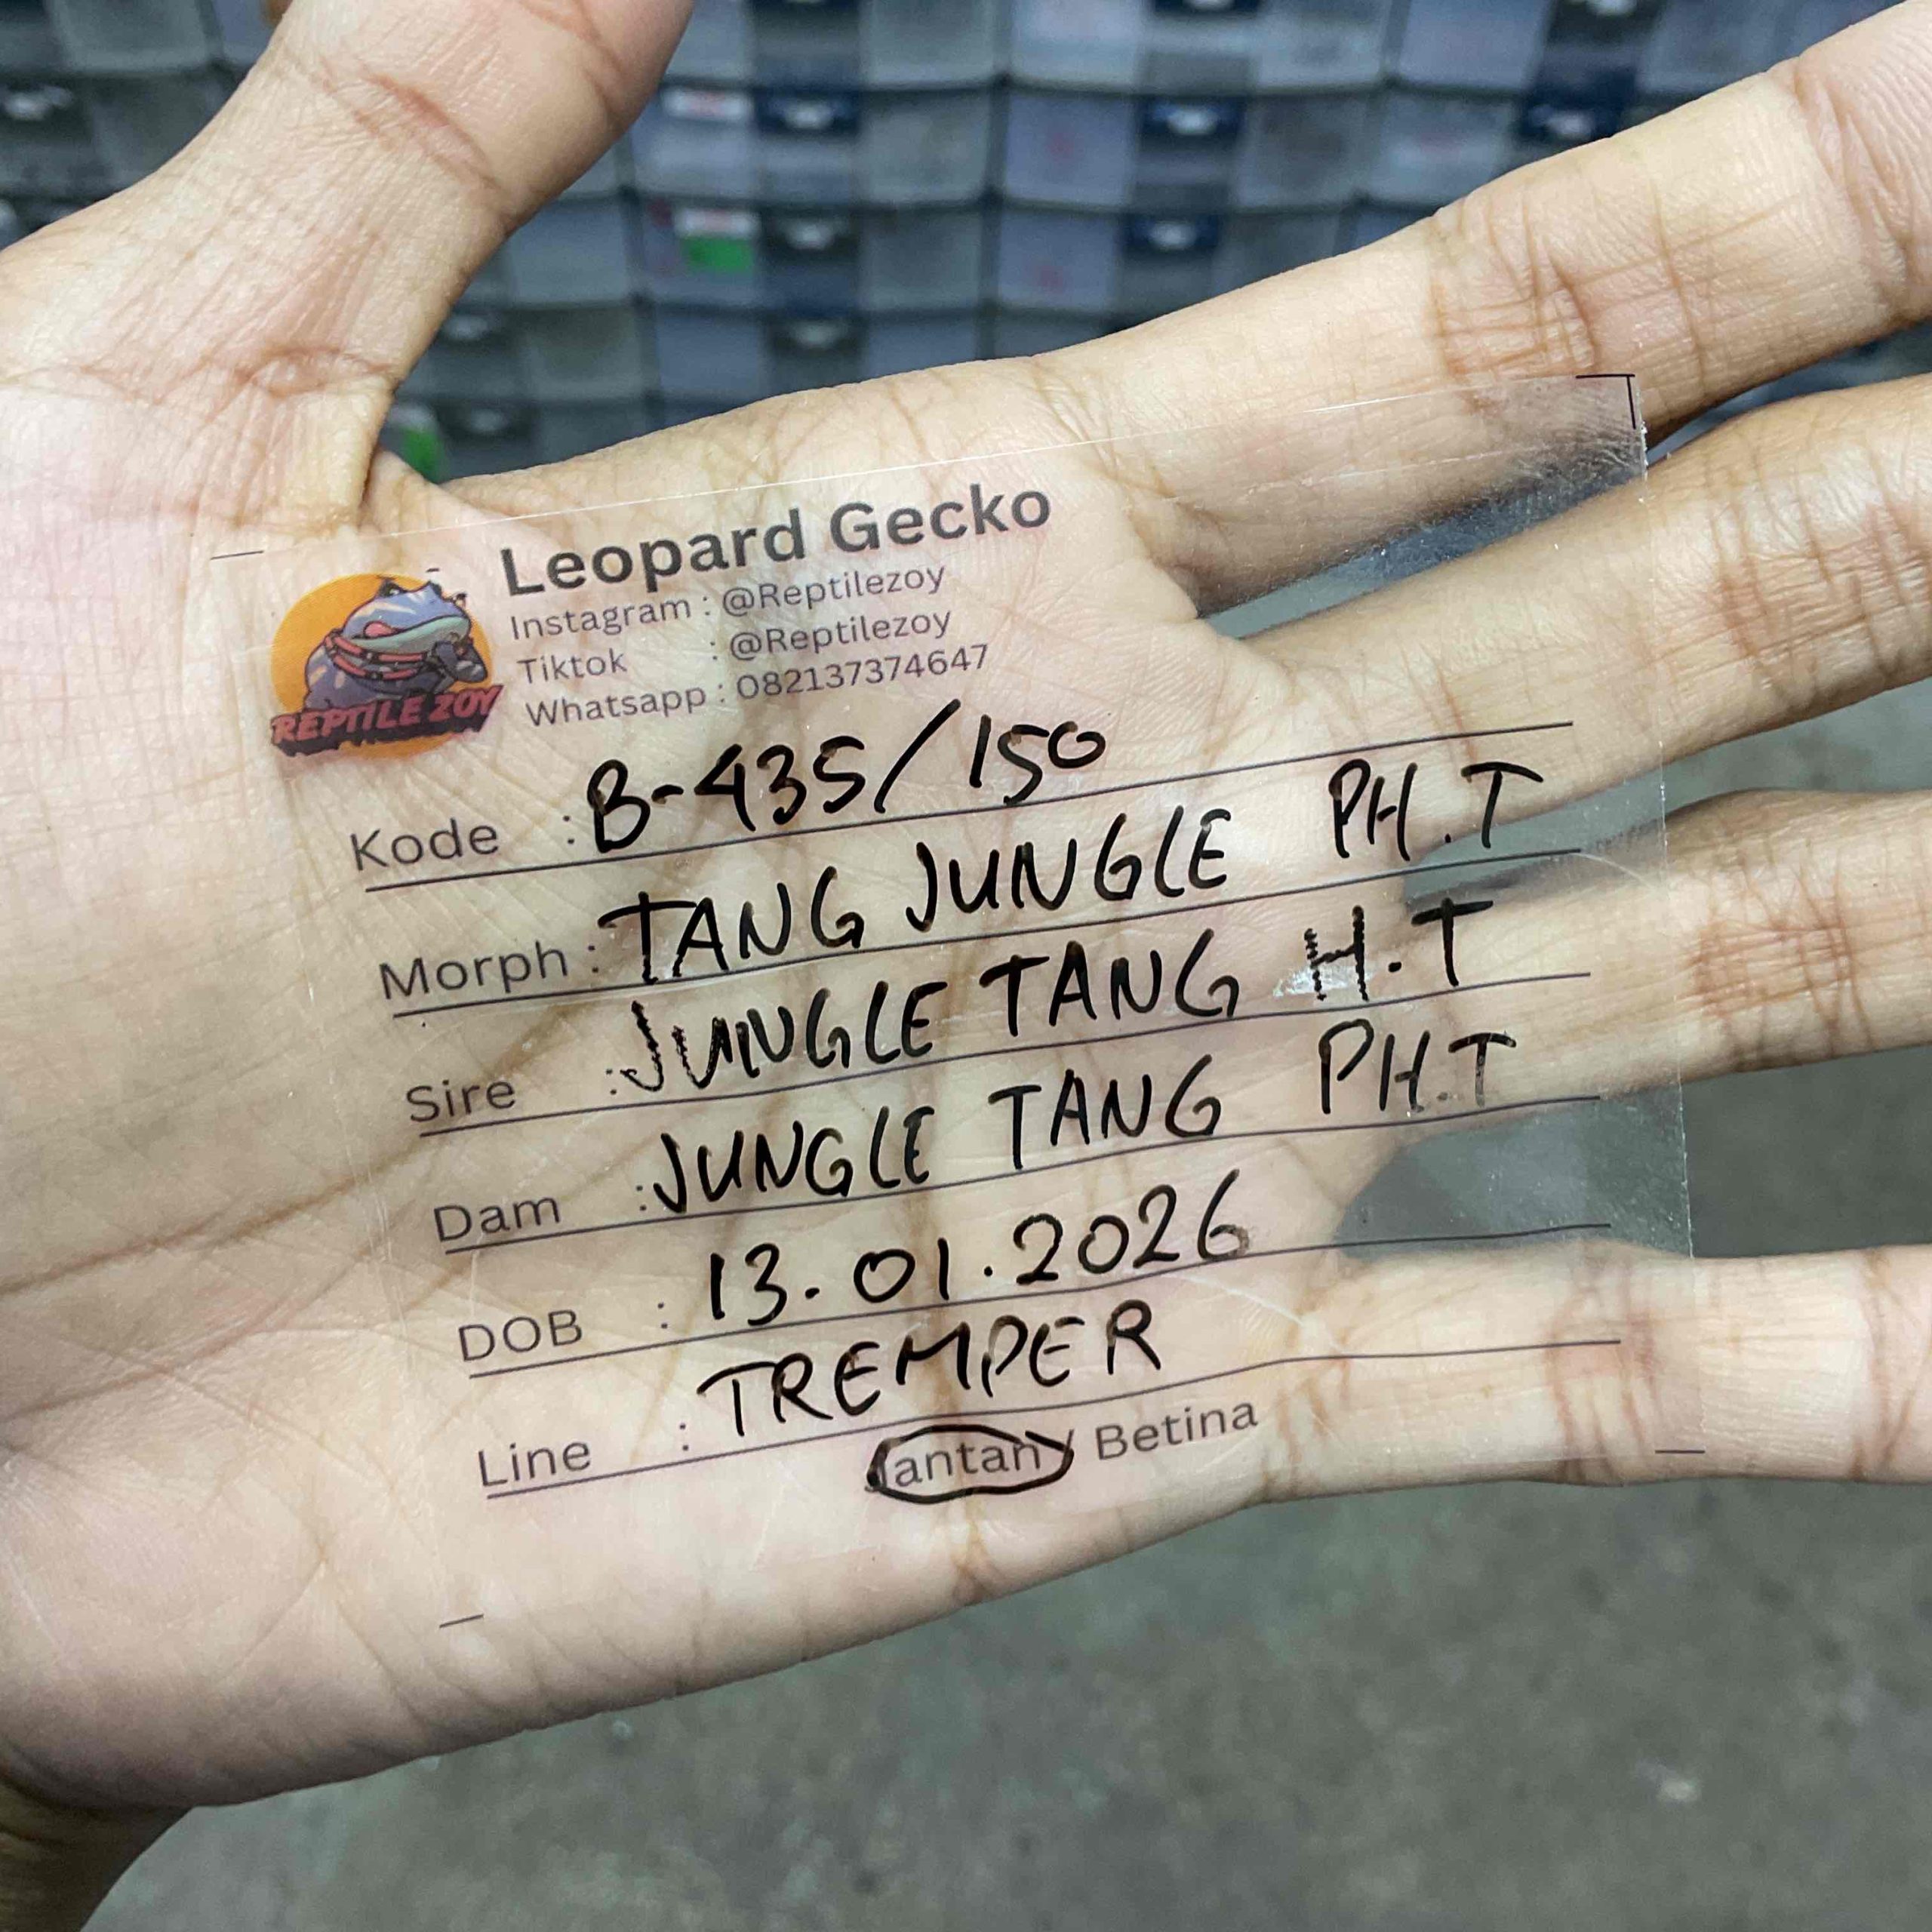 Leopard Gecko
Instagram : @Reptilezoy
Tiktok : @Reptilezoy
Whatsapp : 082137374647
REPTILE ZOY
Kode : B-435/150
Morph : TANG JUNGLE PH.T
Sire : JUNGLE TANG H.T
Dam : JUNGLE TANG PH.T
DOB : 13.01.2026
Line : TREMPER
Jantan / Betina